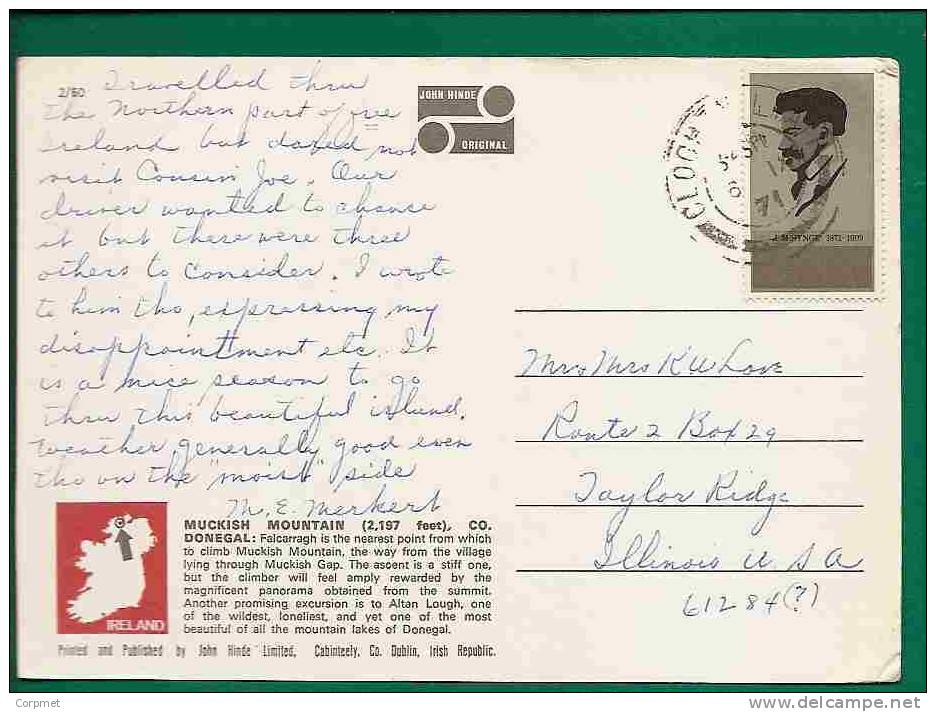 2/60
Travelled thru
the Northern part of free
Ireland but dared not
visit Cousin Joe. Our
driver wanted to chance
it but there were three
others to consider. I wrote
to him tho, expressing my
disappointment etc. It
is a nice season to go
thru this beautiful island.
Weather generally good even
tho on the "moist" side
M. E. Merkert
JOHN HINDE
ORIGINAL
CLOCH
J. M. SYNGE 1871-1909
Mr & Mrs K W Love
Route 2 Box 29
Taylor Ridge
Illinois U S A
61284(?)
IRELAND
MUCKISH MOUNTAIN (2,197 feet), CO.
DONEGAL: Falcarragh is the nearest point from which
to climb Muckish Mountain, the way from the village
lying through Muckish Gap. The ascent is a stiff one,
but the climber will feel amply rewarded by the
magnificent panorama obtained from the summit.
Another promising excursion is to Altan Lough, one
of the wildest, loneliest, and yet one of the most
beautiful of all the mountain lakes of Donegal.
Printed and Published by John Hinde Limited, Cabinteely, Co. Dublin, Irish Republic.
Copyrmet
www.delcampe.net